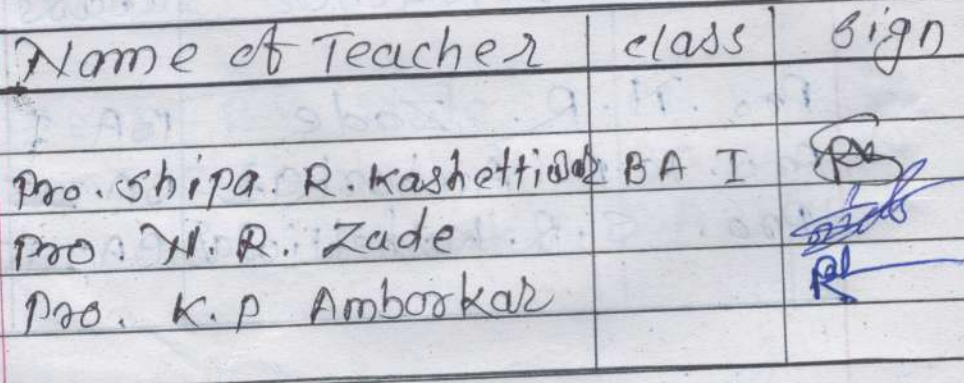 Name of Teacher class sign
Pro. Shipa. R. Kashettiwar BA I
Pro. N. R. Zade
Pro. K. P Amborkar